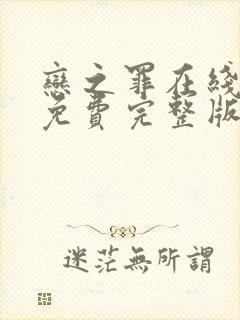 戀之罪在綫
免費完整版
迷茫無所謂